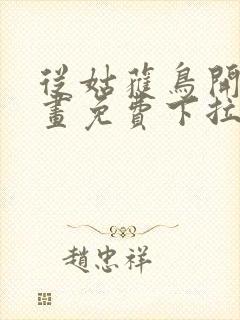 從姑蘿鳥開
畫免費下拉
趙忠祥